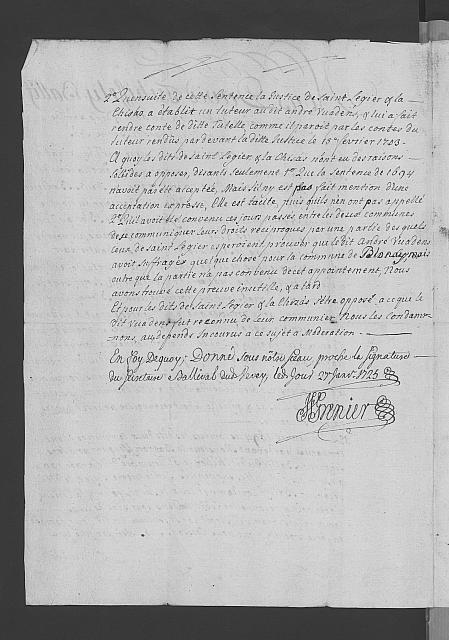 2.° Qu'ensuite de cette Sentence la Justice de Saint Legier & la
Chiésaz a établit un tuteur audit André Vuadens, & lui a fait
rendre conte de ditte Tutelle, comme il paroit par les contes du
tuteur rendus, pardevant la ditte Justice le 15e fevrier 1703 –
A quoy les dits de Saint Legier & la Chiésaz n'ont eu des raisons –
Sollides a opposer, disants seulement 1.° Que la Sentence de 1694
n'avoit pas été aceptée, Mais Sil ny est pas fait mention d'une
acceptation expresse, Elle est tacite, puis quils n'en ont pas appellé
2.° Quil avoit été convenu ces jours passés entre les deux communes
de se communiquer leurs Droits reciproques par une partie des quels
ceux de Saint Legier esperoient prouver que le dit André Vuadens
avoit Sufragés quelque chose pour la commune de Blonay, mais
outre que la partie n'a pas convenu de cet appointement, Nous
avons trouvé cette preuve inutille, & a tard
Et pour les dits de Saint Legier & la Chiésaz s'être opposé a ce que le
dit Vuadens fut reconnu de leur communier Nous les Condam-
nons, au depends incourus a ce sujet a Moderation –
En Foy Dequoy, Donné sous notre Seau proche la signature –
du Secretaire Ballival de Vevey, le d. Jour 27e Janv.r 1725
Grenier